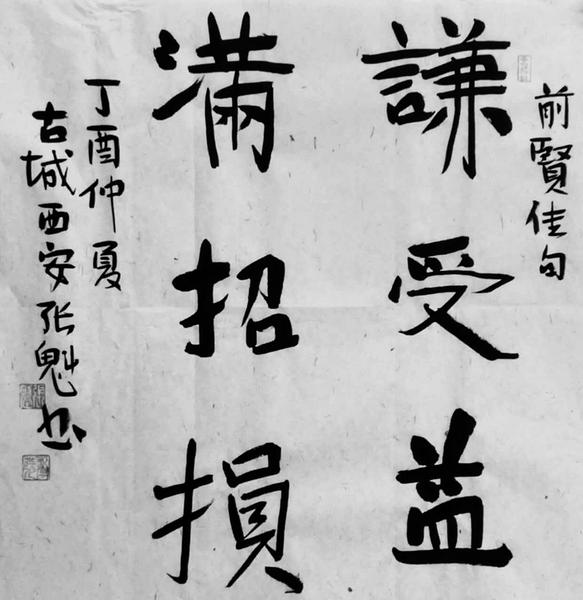 前賢佳句
謙受益
滿招損
丁酉仲夏
古城西安張魁书